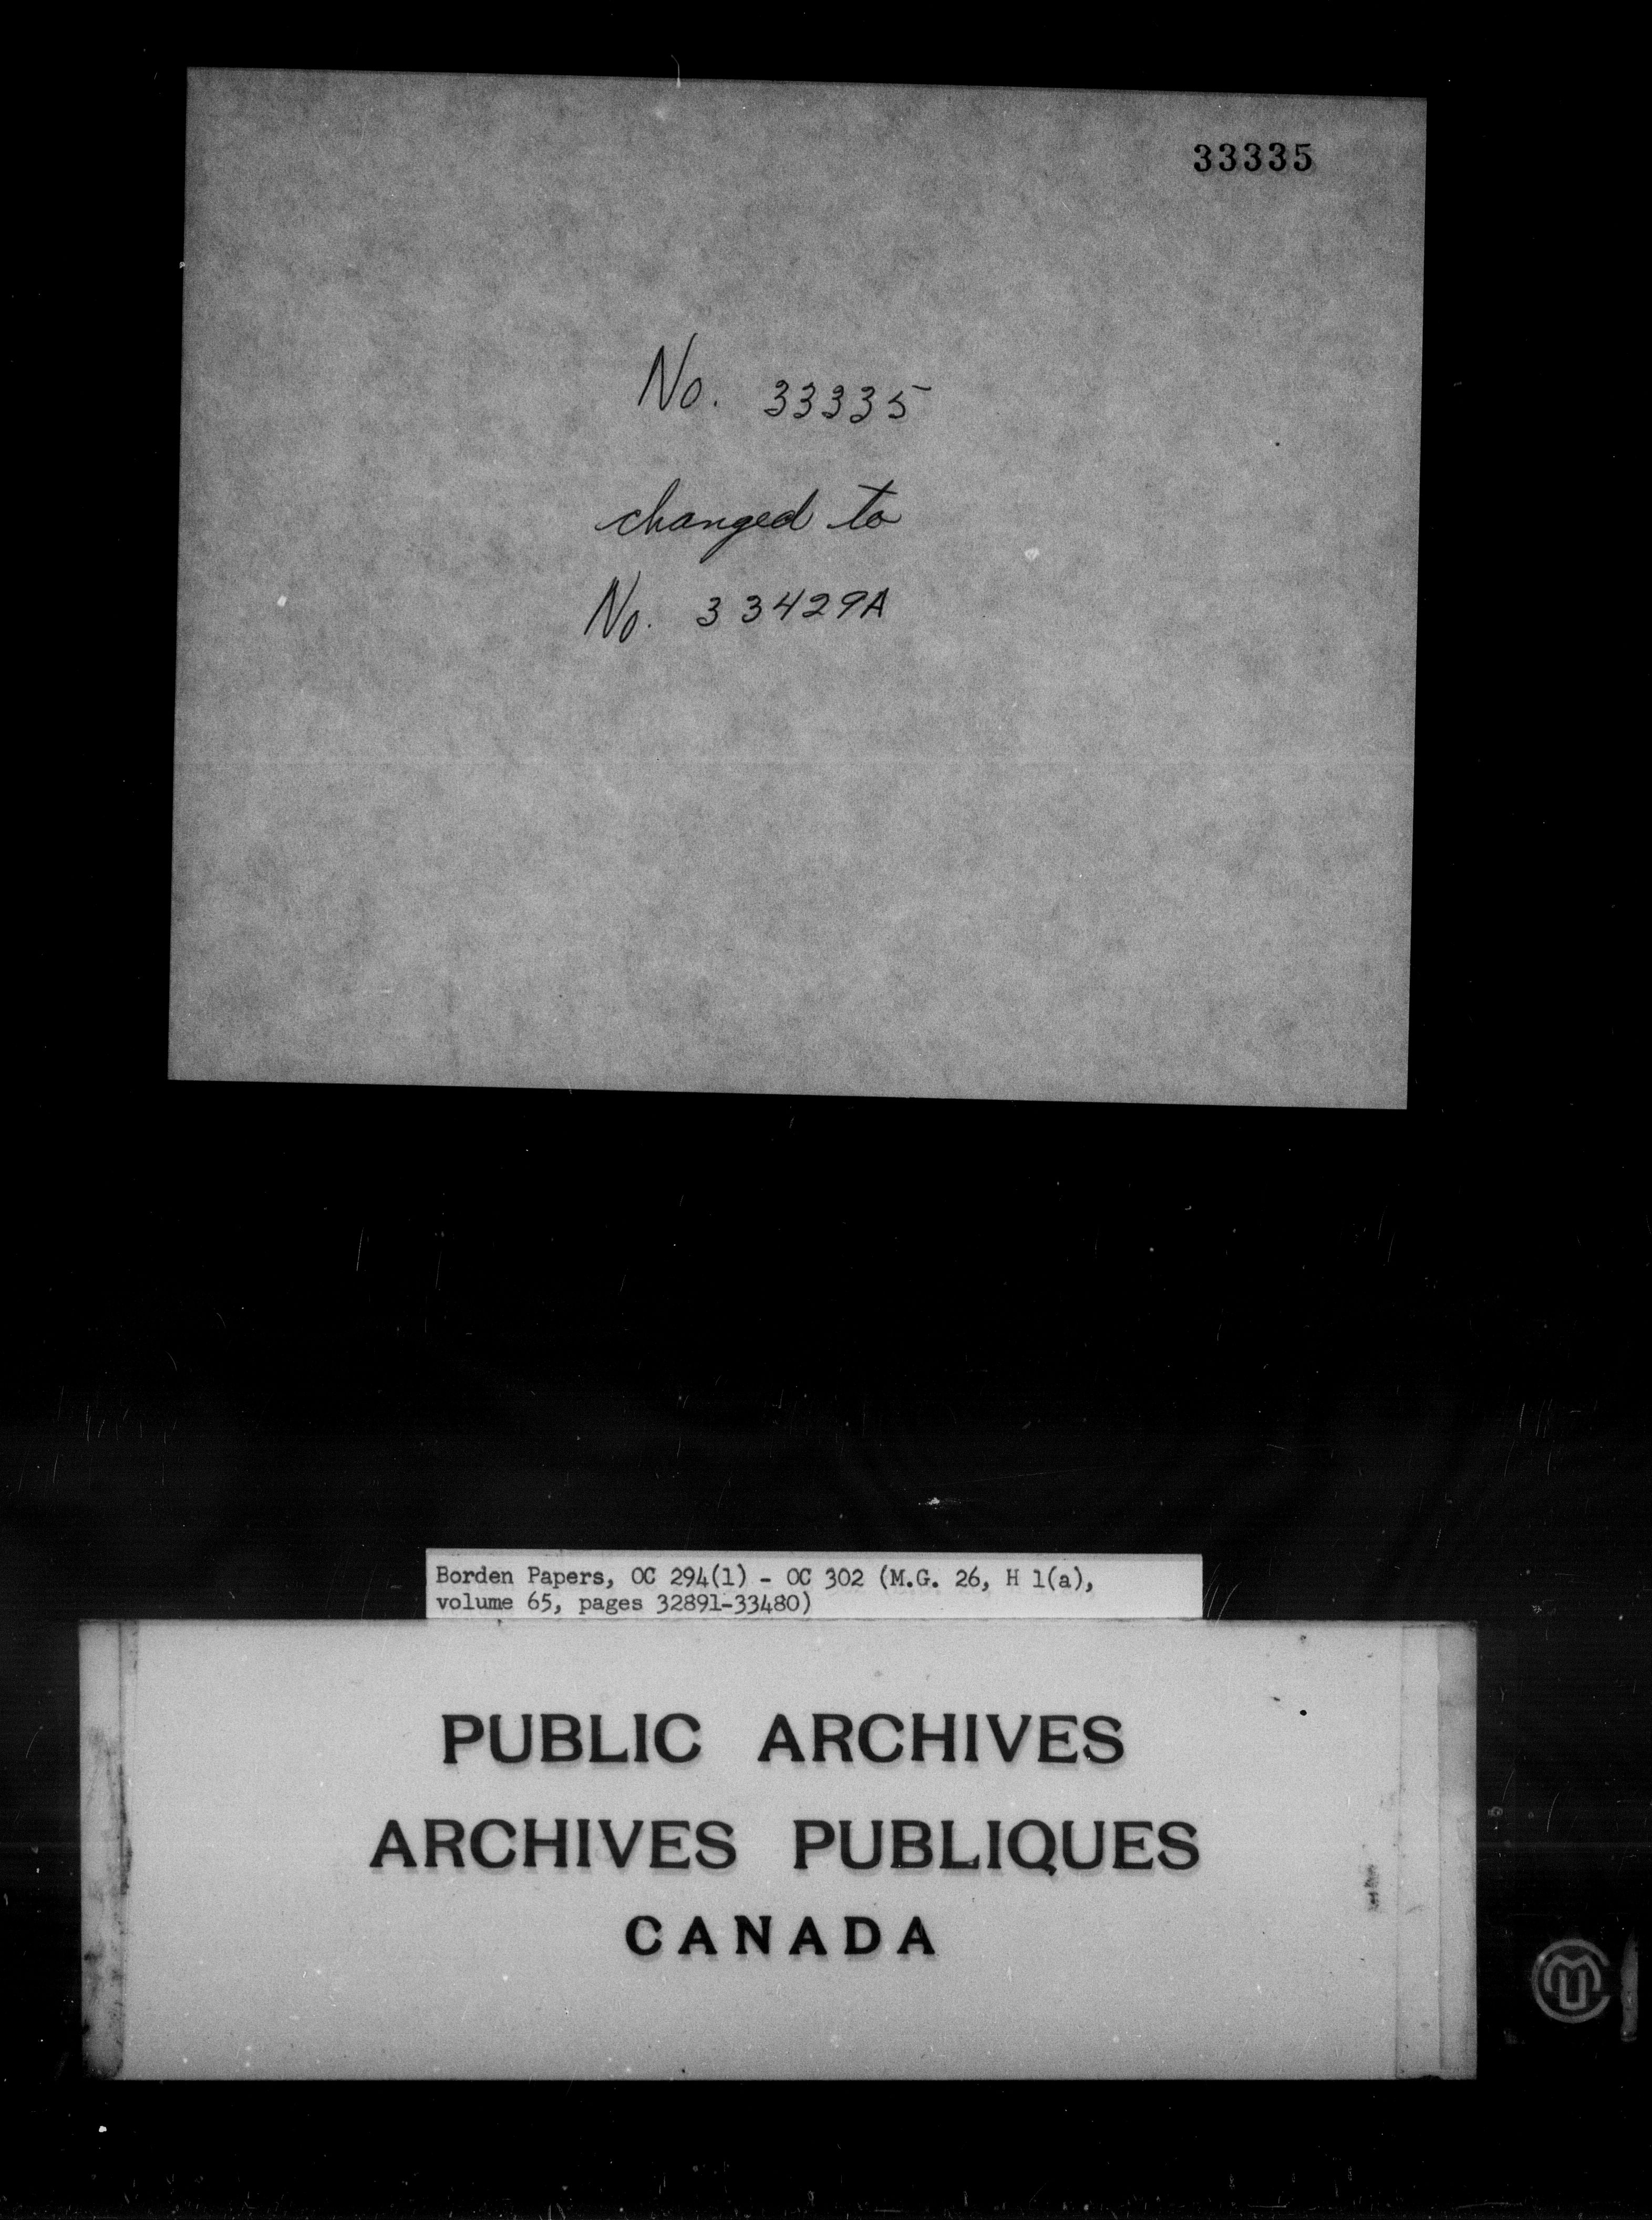 33335
No. 33335
changed to
No. 33429A
Borden Papers, OC 294(1) - OC 302 (M.G. 26, H 1(a),
volume 65, pages 32891-33480)
PUBLIC ARCHIVES
ARCHIVES PUBLIQUES
CANADA